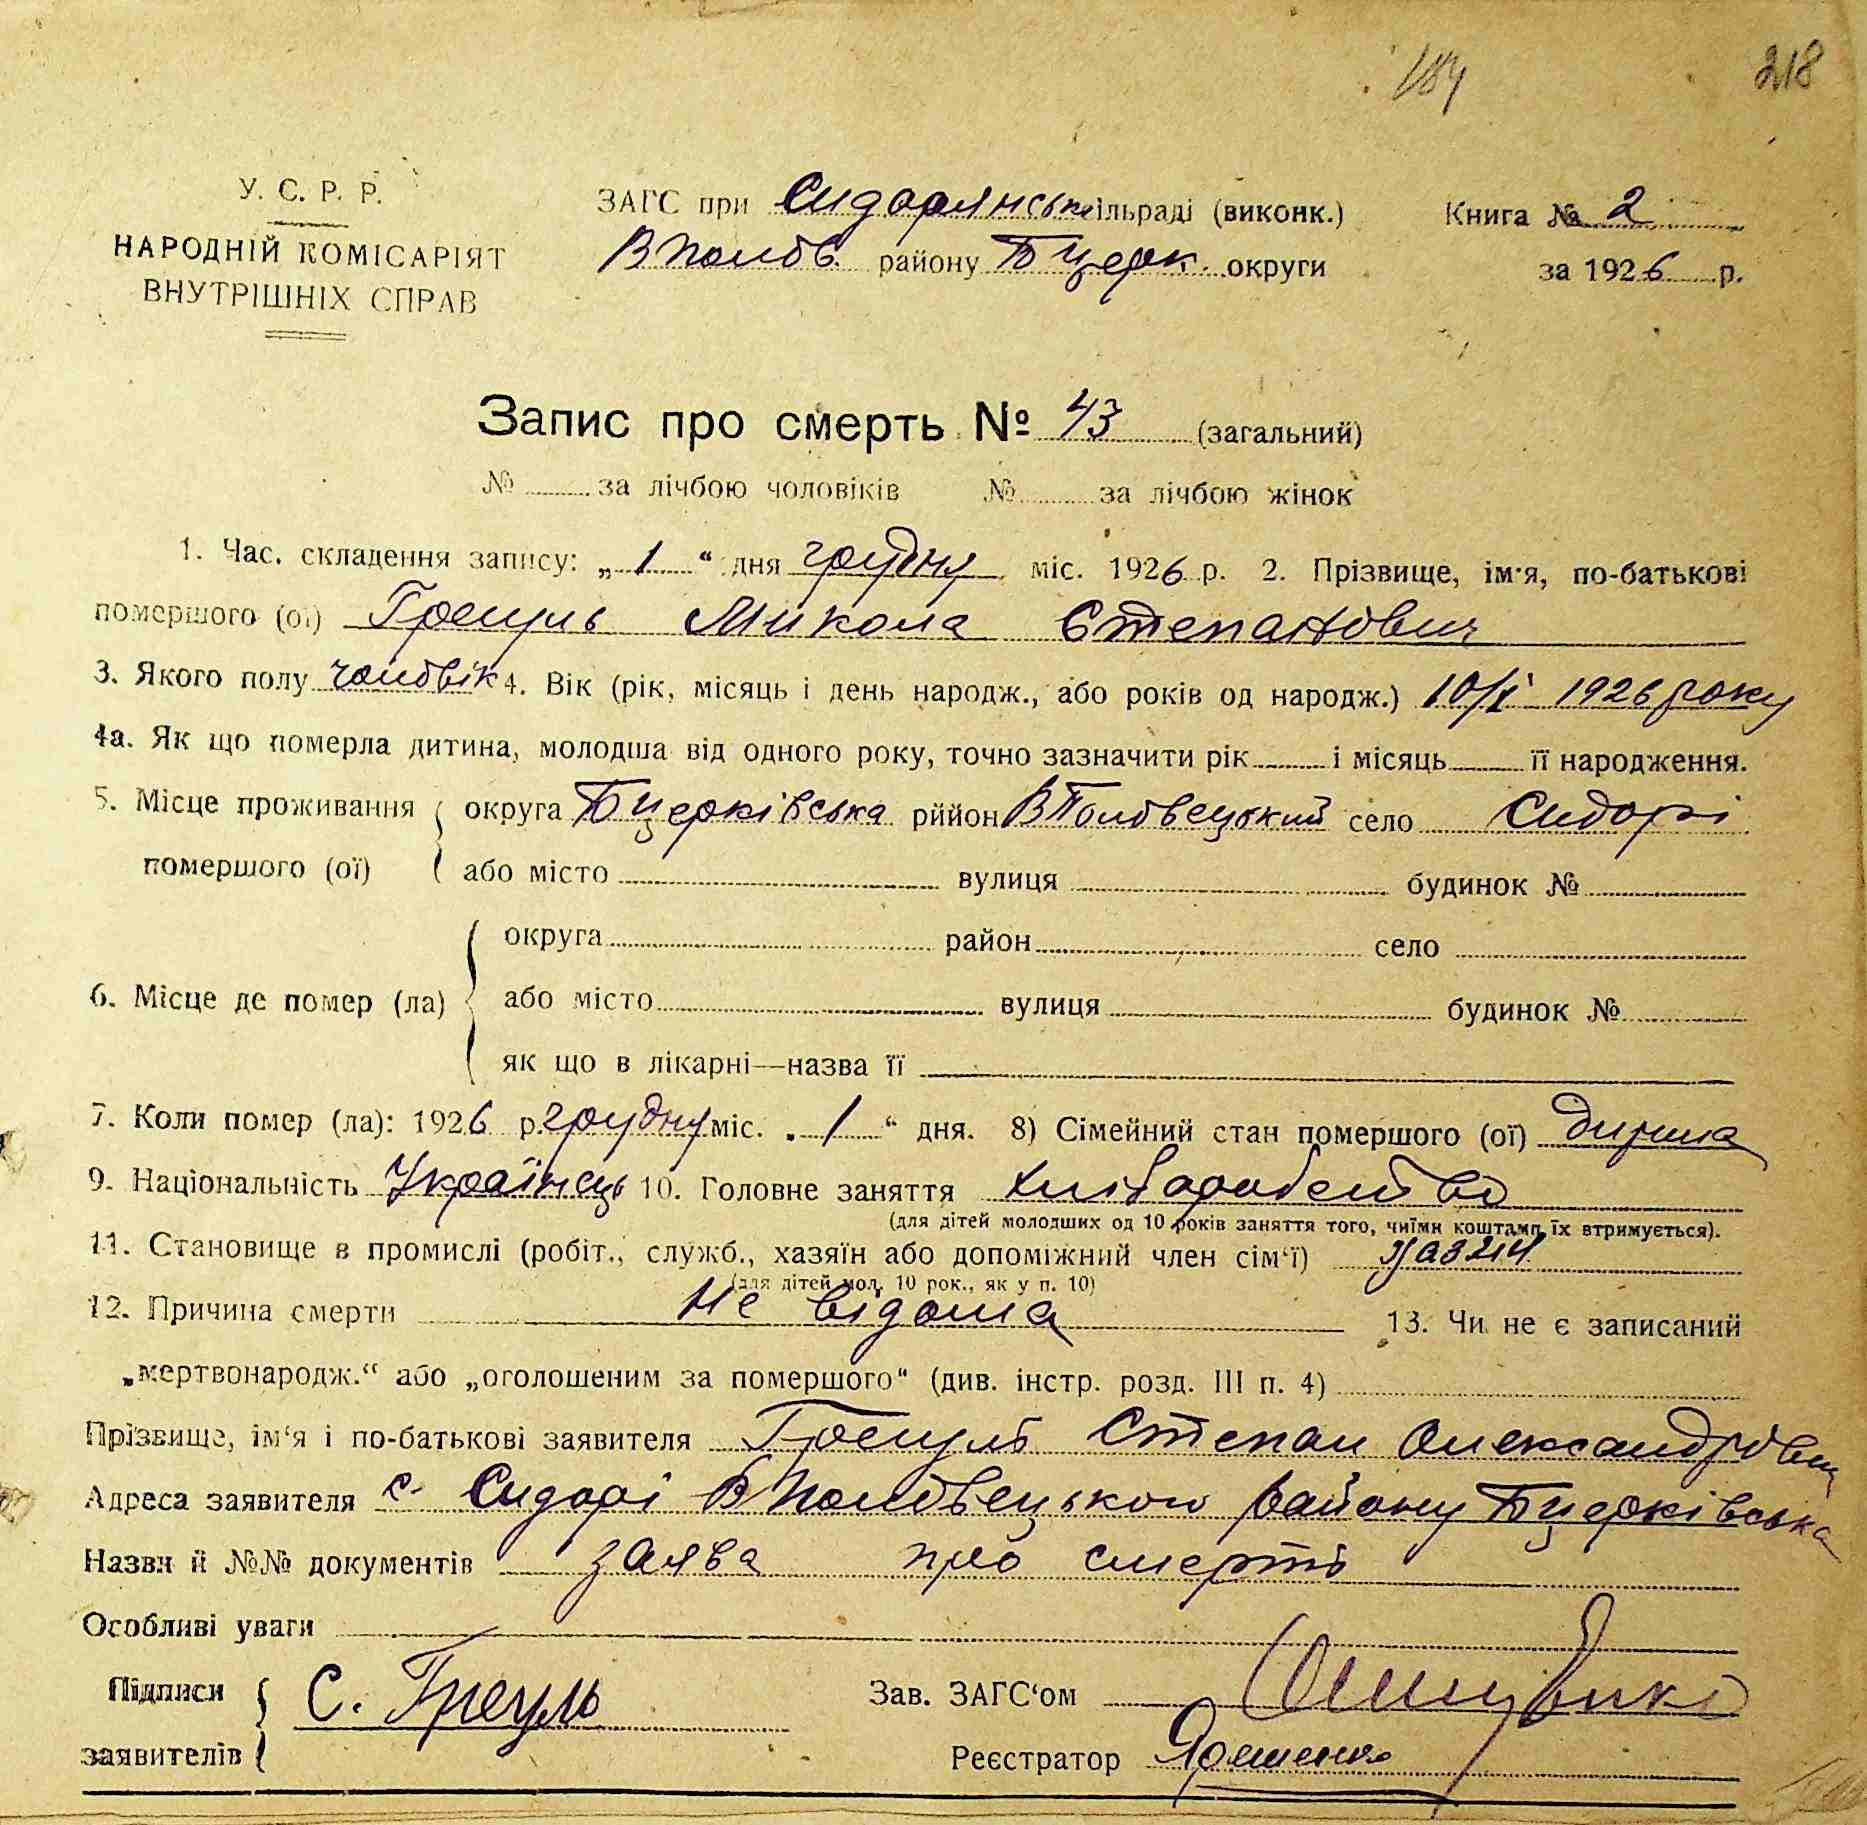 184 218
У. С. Р. Р.
НАРОДНІЙ КОМІСАРІЯТ
ВНУТРІШНІХ СПРАВ
ЗАГС при Сидорянськ ільраді (виконк.)
В Полов. району Б Церк. округи
Книга № 2
за 1926 р.
Запис про смерть № 43 (загальний)
№ за лічбою чоловіків № за лічбою жінок
1. Час. складення запису: „ 1 “ дня грудня міс. 1926 р. 2. Прізвище, ім'я, по-батькові
помершого (ої) Грегуль Микола Степанович
3. Якого полу чоловік 4. Вік (рік, місяць і день народж., або років од народж.) 10/І 1926 року
4а. Як що померла дитина, молодша від одного року, точно зазначити рік і місяць її народження.
5. Місце проживання округа БЦерківська рййон ВПоловецький село Сидорі
помершого (ої) або місто вулиця будинок №
округа район село
6. Місце де помер (ла) або місто вулиця будинок №
як що в лікарні—назва її
7. Коли помер (ла): 1926 р. грудня міс. „ 1 “ дня. 8) Сімейний стан помершого (ої)
9. Національність Українець 10. Головне заняття хліборобство
(для дітей молодших од 10 років заняття того, чиїми коштами їх втримується).
11. Становище в промислі (робіт., служб., хазяїн або допоміжний член сім‘ї)
(для дітей мол. 10 рок., як у п. 10)
12. Причина смерти Не відома 13. Чи не є записаний
„мертвонародж.“ або „оголошеним за помершого“ (див. інстр. розд. III п. 4)
Прізвище, ім‘я і по-батькові заявителя Грегуль Степан Олександрович
Адреса заявителя с. Сидорі ВПоловецького району БЦерківська
Назви й №№ документів заява про смерть
Особливі уваги
Підписи С. Грегуль Зав. ЗАГС‘ом
заявителів Реєстратор